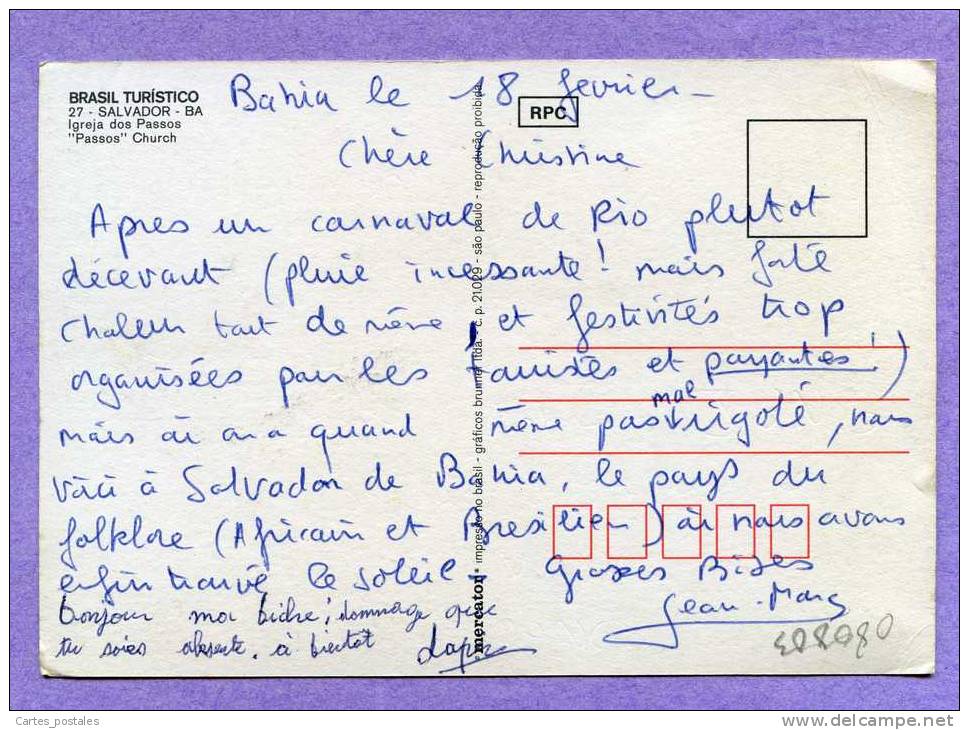 BRASIL TURÍSTICO
27 - SALVADOR - BA
Igreja dos Passos
"Passos" Church
RPC
Bahia le 18 février -
Chère Christine
Apres un carnaval de Rio plutot
décevant (pluie incessante ! mais forte
chaleur tout de même, et festivités trop
organisées pour les touristes et payantes !)
mais où on a quand même pas mal rigolé, nous
voici à Salvador de Bahia, le pays du
folklore (Africain et Bresilien) où nous avons
enfin trouvé le soleil. Grosses Bises
Jean-Marc
bonjour ma biche ; dommage que
tu sois absente. à bientot
mercator impresso no brasil - gráficos brunner ltda. - c. p. 21.029 - são paulo - reprodução proibida
Cartes_postales
www.delcampe.net